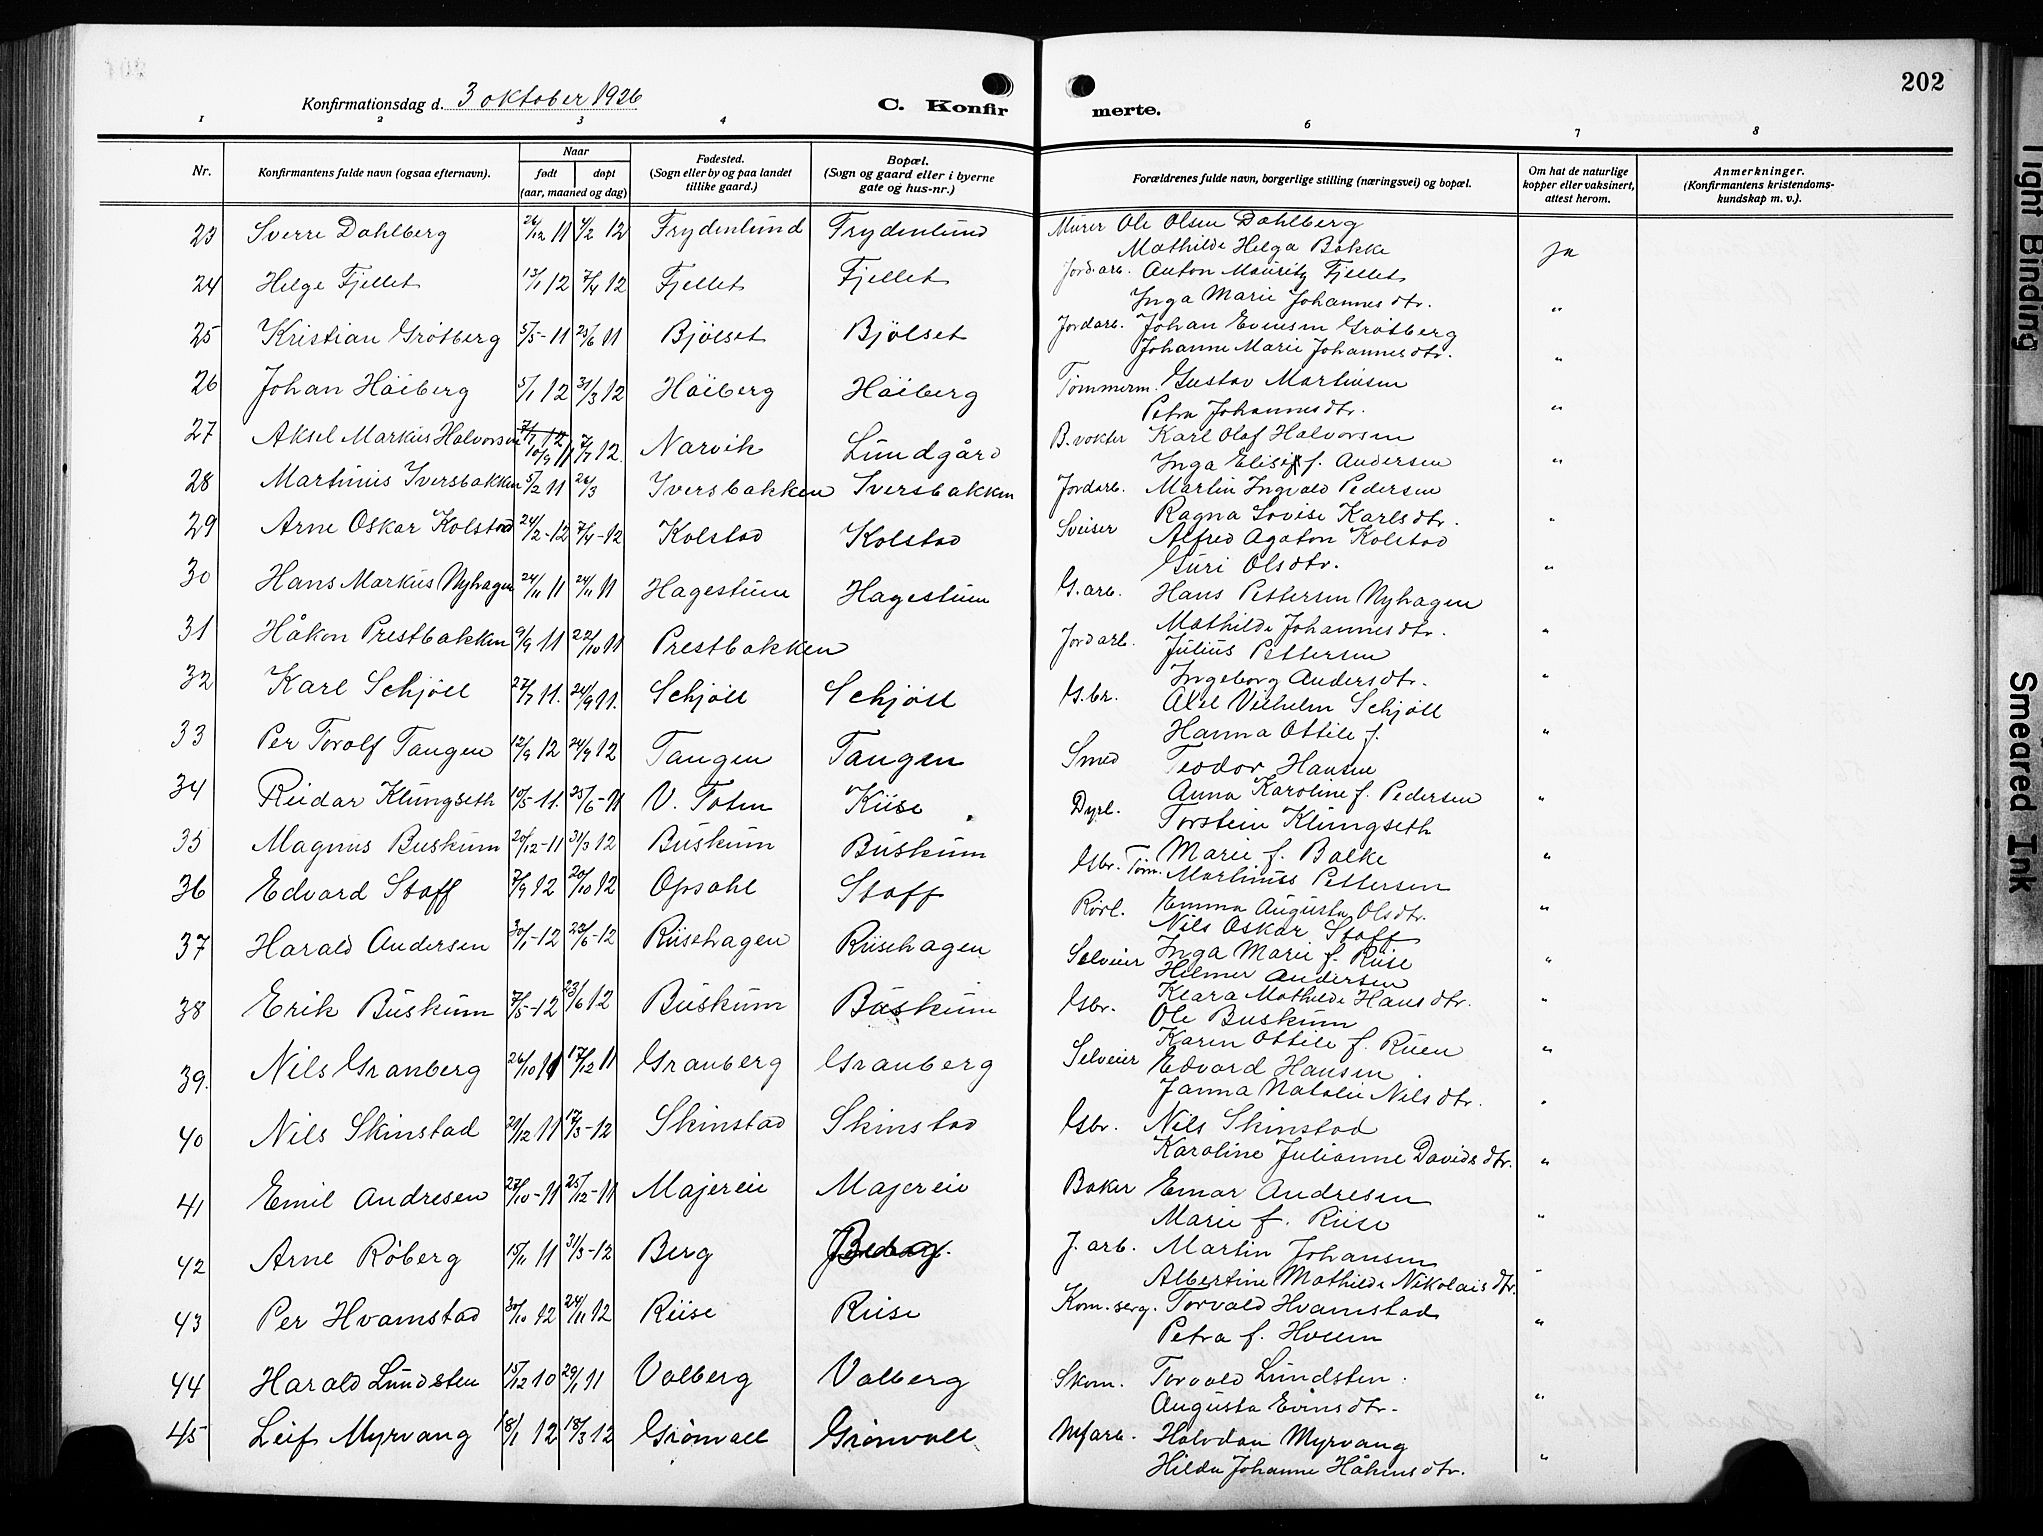 202
Konfirmationsdag d. 3 oktober 1926
C. Konfirmerte.
1 2 3 4 6 7 8
Nr. Konfirmantens fulde navn (ogsaa efternavn). Naar født døpt (aar, maaned og dag) Fødested. (Sogn eller by og paa landet tillike gaard.) Bopæl. (Sogn og gaard eller i byerne gate og hus-nr.) Forældrenes fulde navn, borgerlige stilling (næringsvei) og bopæl. Om hat de naturlige kopper eller vaksinert, attest herom. Anmerkninger. (Konfirmantens kristendoms-kundskap m. v.).
23 Sverre Dahlberg 26/12 11 4/2 12 Frydenlund Frydenlund Murer Ole Olsen Dahlberg
Mathilde Helga Bakke Ja
24 Helge Fjellet 13/1 12 7/4 12 Fjellet Fjellet Jordarb. Anton Mauritz Fjellet
Inga Marie Johannesdtr. "
25 Kristian Grøtberg 5/5-11 25/6 11 Bjølset Bjølset Jordarb. Johan Evensen Grøtberg
Johanne Marie Johannesdtr. "
26 Johan Höiberg 5/1 12 31/3 12 Höiberg Höiberg Tømmerm. Gustav Martinsen
Petra Johannesdtr. "
27 Aksel Markus Halvorsen 7/7 12 10/9 11 7/7 12. Narvik Lundgård B.vokter Karl Olaf Halvorsen
Inga Elise f. Andersen "
28 Martinus Iversbakken 5/2 11 26/3 Iversbakken Iversbakken Jordarb. Martin Ingvald Pedersen
Ragna Lovise Karlsdtr. "
29 Arne Oskar Kolstad 24/2-12 7/4-12 Kolstad Kolstad Sveiser Alfred Agaton Kolstad
Guri Olsdtr. "
30 Hans Markus Nyhagen 24/11 11 Hagestuen Hagestuen G.arb. Hans Pettersen Nyhagen
Mathilde Johannesdtr. "
31 Håkon Prestbakken 9/9 11 22/10 11 Prestbakken Jordarb. Julius Pettersen
Ingeborg Andersdtr. "
32 Karl Schjöll 27/7 11. 24/9 11. Schjöll Schjöll G.br. Axel Vilhelm Schjöll
Hanna Ottile f. "
33 Per Torolf Tangen 12/9 12 Tangen Tangen Smed Teodor Hansen
Anna Karoline f. Pedersen "
34 Reidar Klungseth 10/5-11. 25/6-11 V. Toten Riise Dyrl. Torstein Klungseth
Marie f. Balke "
35 Magnus Buskum 20/12-11 31/3 12 Buskum Buskum Gbr. Tøm. Martinus Pettersen
Emma Augusta Olsdtr. "
36 Edvard Staff 7/9 12 20/10 12 Opsahl Staff Rørl. Nils Oskar Staff
Inga Marie f. Riise "
37 Harald Andersen 30/1-12 23/6-12 Riisehagen Riisehagen Selveier Hilmer Andersen
Klara Mathilde Hansdtr. "
38 Erik Buskum 7/5-12 23/6 12 Buskum Buskum Gbr. Ole Buskum
Karen Ottile f. Ruen "
39. Nils Granberg 26/10 11 17/12 11 Granberg Granberg Selveier Edvard Hansen
Janna Natalie Nilsdtr. "
40 Nils Skinstad 29/12 11 17/3-12 Skinstad Skinstad Gbr. Nils Skinstad
Karoline Julianne Davidsdtr. "
41 Emil Andresen 27/10-11 25/12-11 Majeriei Majeriei Baker Emar Andresen
Marie f. Riise "
42 Arne Røberg 15/11 11 31/3-12 Berg J.arb. Martin Johansen
Albertine Mathilde Nikolaisdtr. "
43 Per Hvamstad 30/10 12 24/11 12 Riise Riise Kom.serg. Torvald Hvamstad
Petra f. Hveem "
44 Harald Lundsten 15/12 10 29/1 11 Valberg Valberg Skom. Torvald Lundsten.
Augusta Evensdtr. "
45 Leif Myrvang 18/1 12 18/3 12 Grönvall Grönvoll Mfarb. Halvdan Myrvang
Hilda Johanne Håkensdtr. "
Tight Binding
Smeared Ink